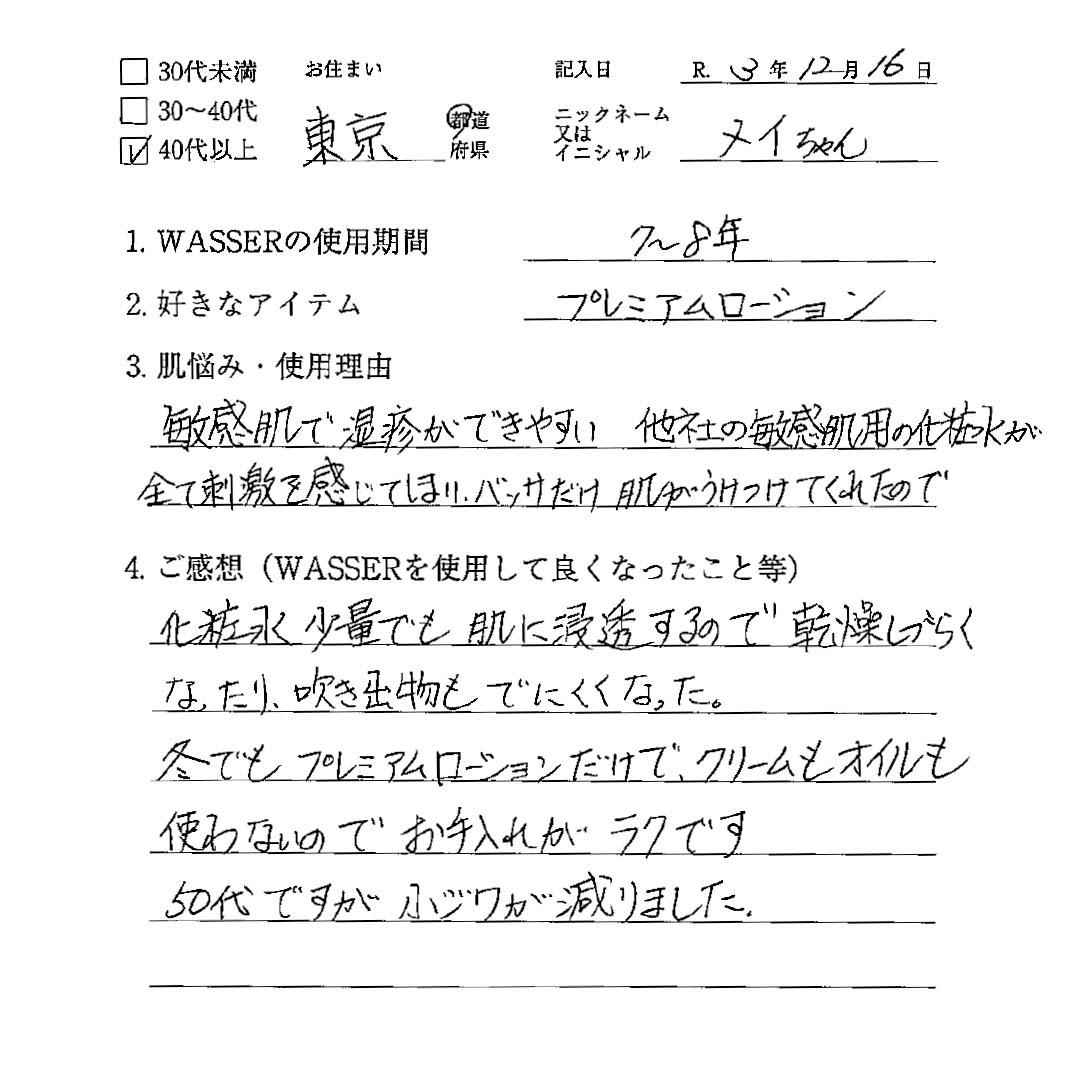 □ 30代未満 お住まい 記入日 R. 3 年 12 月 16 日
□ 30〜40代 東京 都道府県 ニックネーム又はイニシャル メイちゃん
☑ 40代以上
1. WASSERの使用期間 7〜8年
2. 好きなアイテム プレミアムローション
3. 肌悩み・使用理由
敏感肌で湿疹ができやすい 他社の敏感肌用の化粧水が
全て刺激を感じてしまい、バッサだけ 肌がうけつけてくれたので
4. ご感想（WASSERを使用して良くなったこと等）
化粧水 少量でも 肌に浸透するので 乾燥しづらく
なったり、吹き出物も でにくくなった。
冬でも プレミアムローションだけで、クリームもオイルも
使わないので お手入れが ラクです
50代ですが 小ジワが減りました.